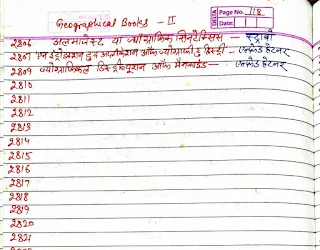 Geographical Books - II
Page No. 118
Date
2806 अलमाजेस्ट या ज्योग्राफिक सिनटेक्सिस — स्ट्राबो
2807 एन इंट्रोडक्शन टू द आप्लीकेशन ऑफ ज्योग्राफी टू हिस्ट्री — एल्फ्रेड हेटनर
2809 ज्योग्राफिकल डिस्ट्रीब्यूशन ऑफ मैनकाईंड — एल्फ्रेड हेटनर
2810
2811
2812
2813
2814
2815
2816
2817
2818
2819
2820
2821